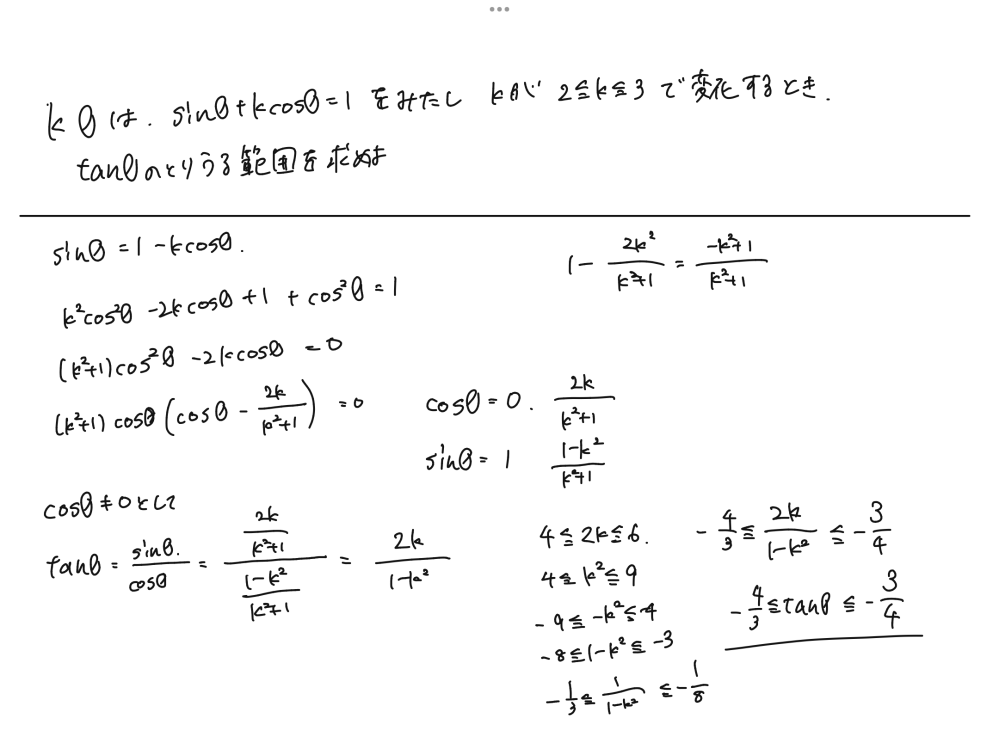 k θは. sinθ+kcosθ=1 をみたし kが 2≦k≦3 で変化するとき.
tanθのとりうる範囲を求めよ
sinθ = 1 - kcosθ.
k²cos²θ - 2kcosθ + 1 + cos²θ = 1
(k²+1)cos²θ - 2kcosθ = 0
(k²+1) cosθ (cosθ - 2k/(k²+1)) = 0
1 - 2k²/(k²+1) = (-k²+1)/(k²+1)
cosθ = 0. 2k/(k²+1)
sinθ = 1 (1-k²)/(k²+1)
cosθ≠0として
tanθ = sinθ./cosθ = (2k/(k²+1))/((1-k²)/(k²+1)) = 2k/(1-k²)
4≦2k≦6.
4≦k²≦9
-9≦-k²≦-4
-8≦1-k²≦-3
-1/3≦1/(1-k²)≦-1/8
-4/3≦2k/(1-k²)≦-3/4
-4/3≦tanθ≦-3/4